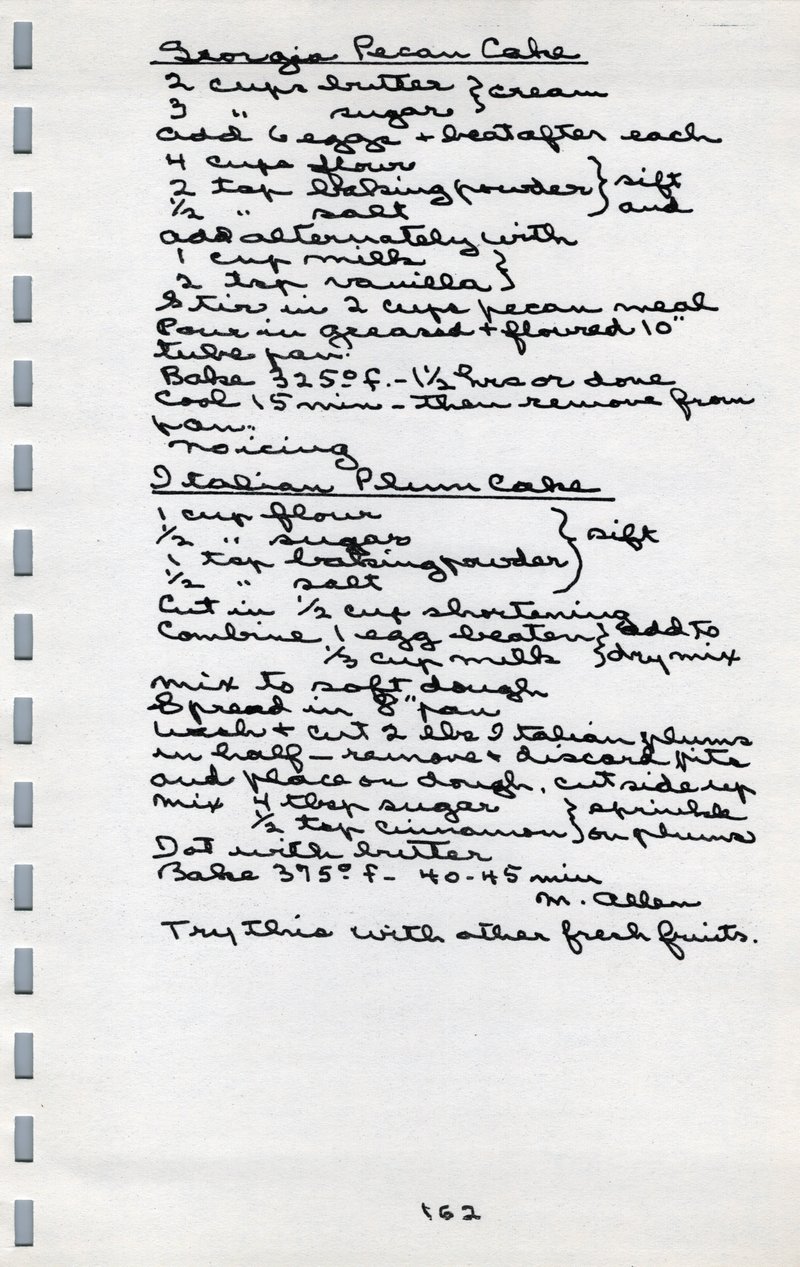 Georgia Pecan Cake
2 cups butter } cream
3 " sugar }
add 6 eggs + beat after each
4 cups flour
2 tsp baking powder } sift
½ " salt } and
add alternately with
1 cup milk }
2 tsp vanilla }
Stir in 2 cups pecan meal
Pour in greased + floured 10"
tube pan.
Bake 325° f. - 1½ hrs or done
Cool 15 min - then remove from
pan.
no icing
Italian Plum Cake
1 cup flour
½ " sugar } sift
1 tsp baking powder
½ " salt
Cut in ½ cup shortening
Combine 1 egg beaten } add to
⅓ cup milk } dry mix
mix to soft dough
Spread in 8" pan
Wash + cut 2 lbs Italian plums
in half - remove + discard pits
and place on dough, cut side up
Mix 4 tbsp sugar } sprinkle
½ tsp cinnamon } on plums
Dot with butter
Bake 375° f - 40-45 min
M. Allen
Try this with other fresh fruits.
162